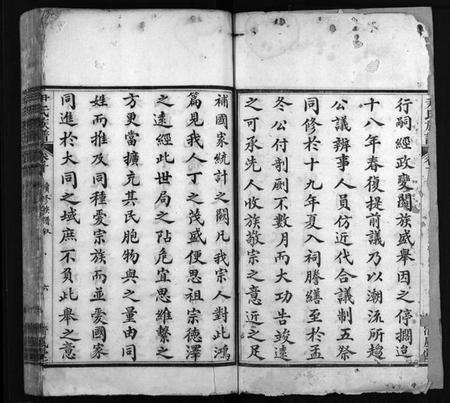 行嗣經政變闔族盛舉因之停擱迨
十八年春復提前議乃以潮流所趨
公議辦事人員仿近代合議制五祭
同修於十九年夏入祠謄繕至於孟
冬公付剞劂不數月而大功告竣遠
之可承先人收族敬宗之意近之足
補國家統計之闕凡我宗人對此鴻
篇見我人丁之茂盛便思祖宗德澤
之遠經此世局之阽危宜思維繫之
方更當擴充其民胞物與之量由同
姓而推及同種愛宗族而並愛國家
同進於大同之域庶不負此舉之意
尹氏
六